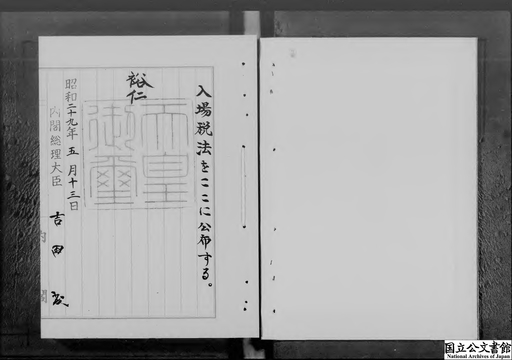 入場税法をここに公布する。
裕仁
天皇
御璽
昭和二十九年五月十三日
内閣総理大臣
吉田茂
国立公文書館
National Archives of Japan